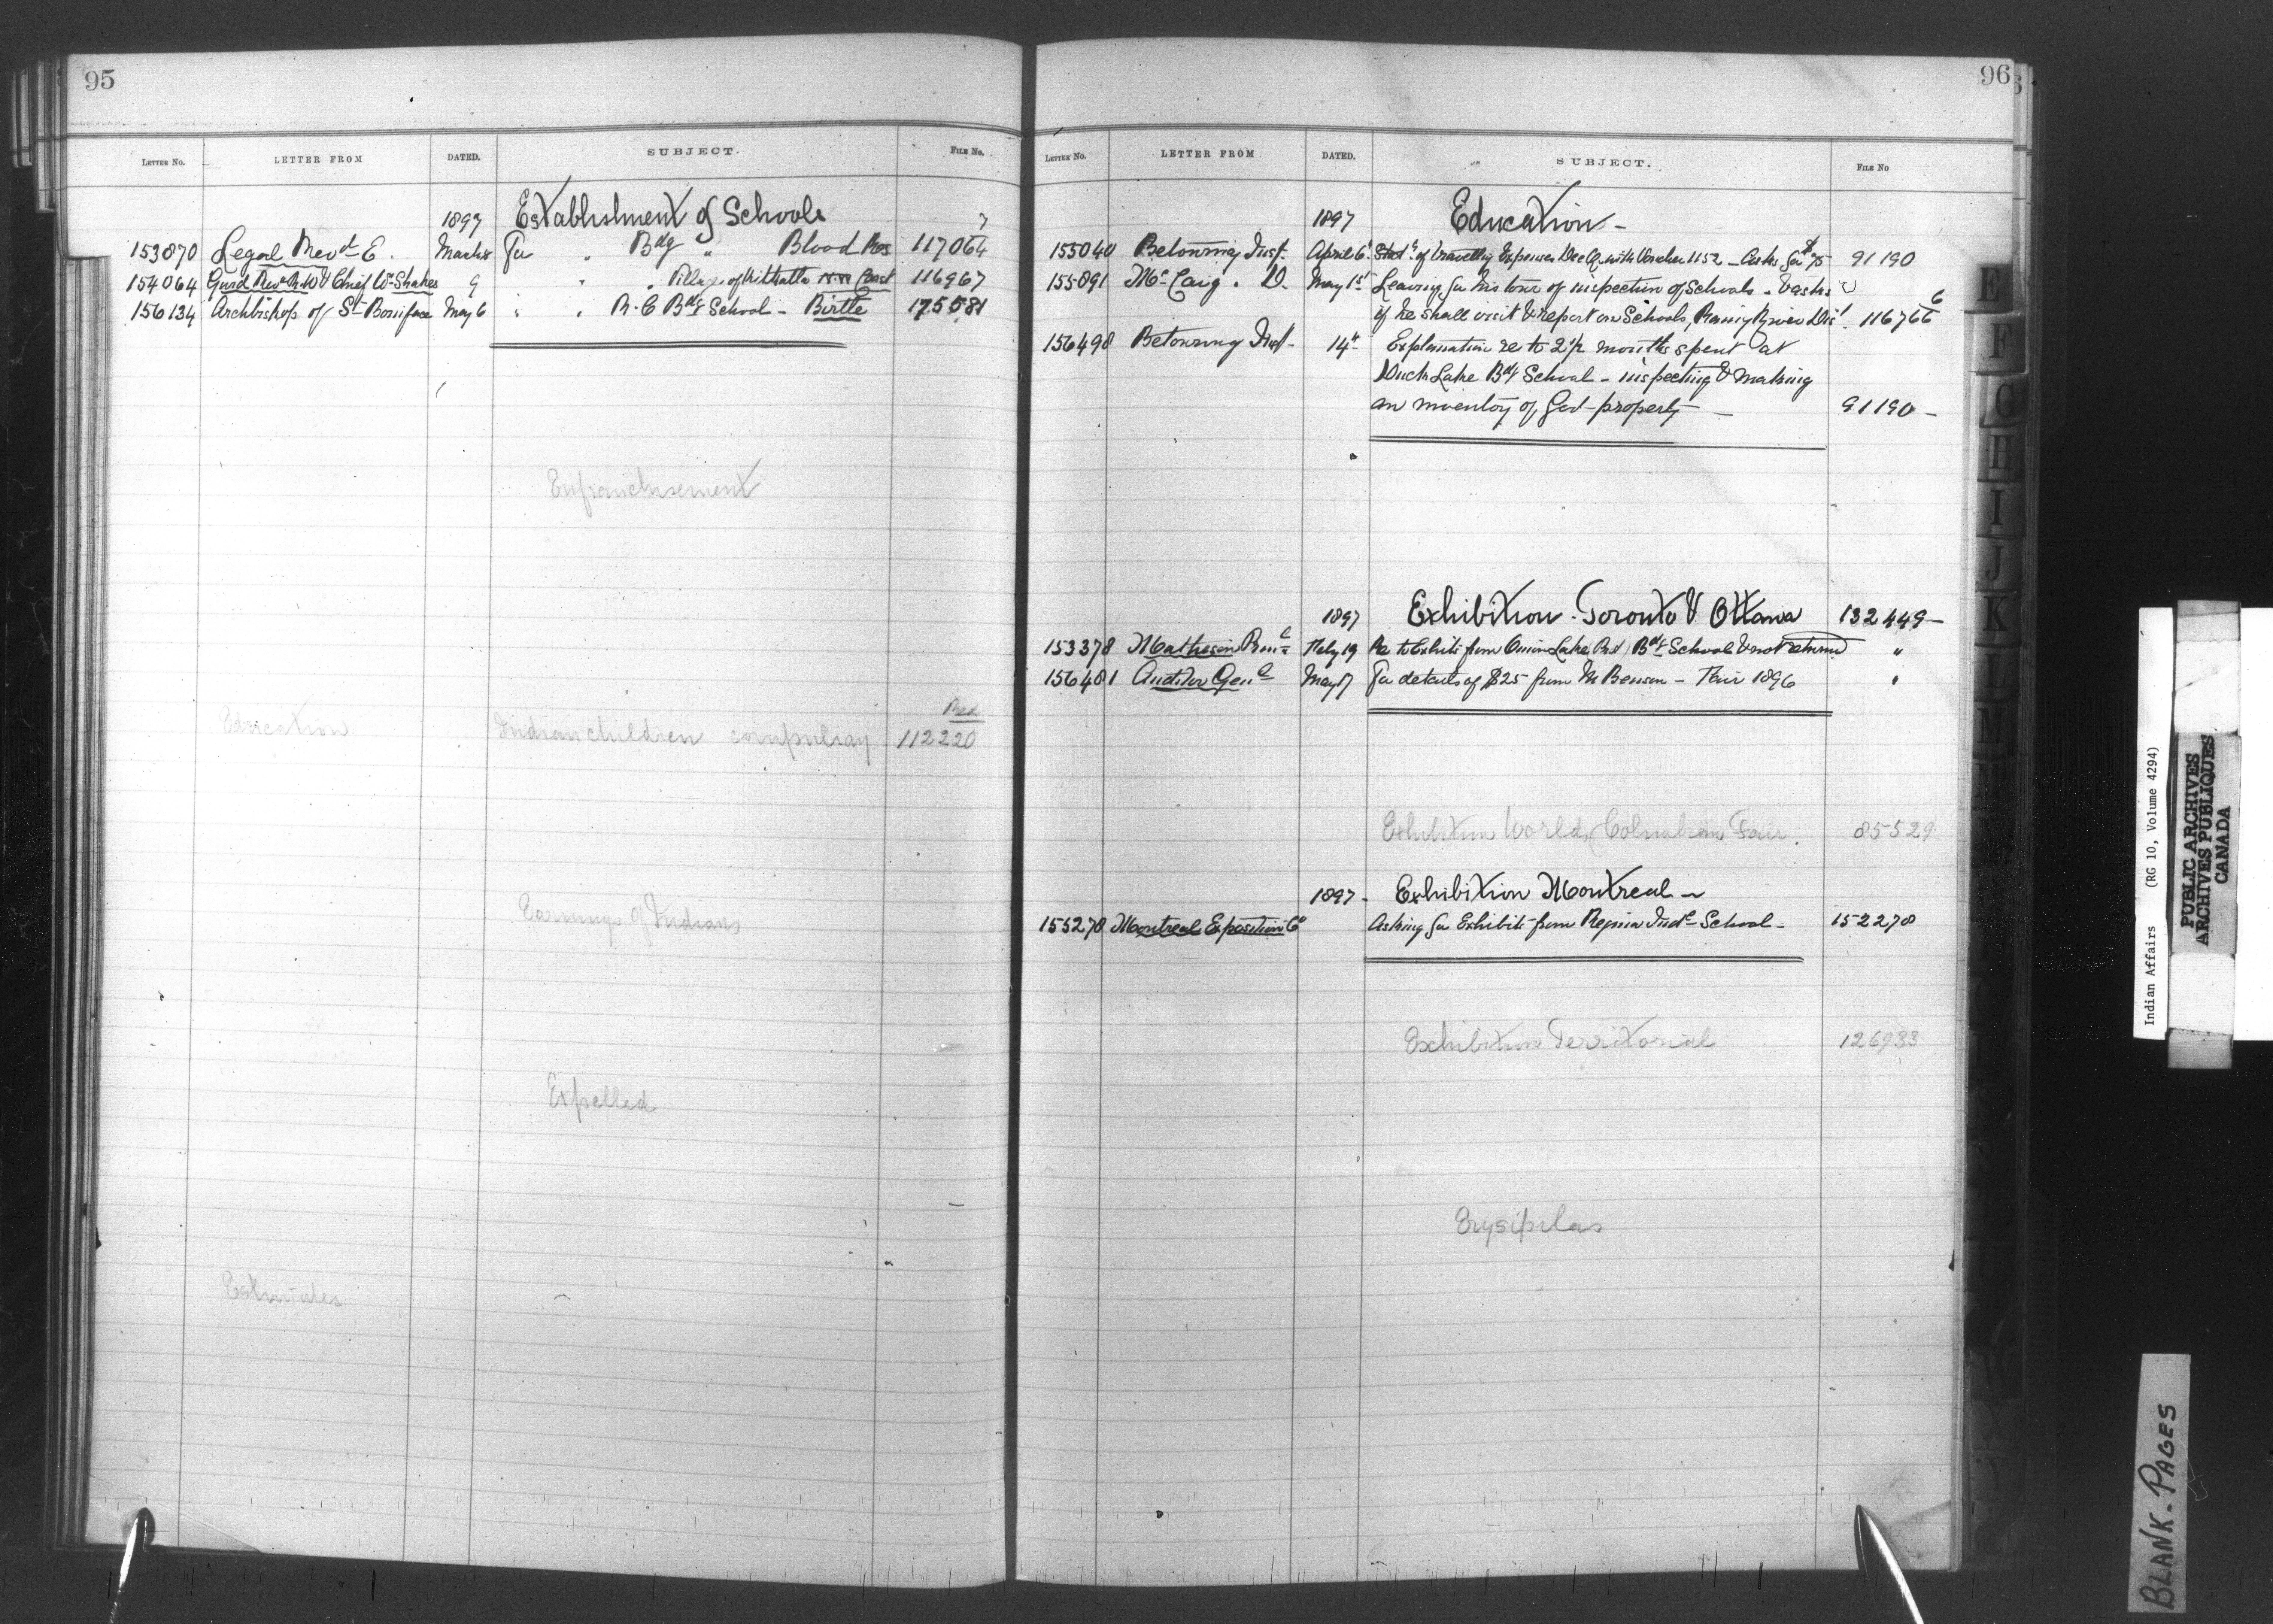 95
LETTER NO. LETTER FROM DATED. SUBJECT. FILE NO.
1897 Establishment of Schools
153870 Legal Revd E. March 8 For " Bdg " Blood Res 117064
154064 Gurd Revd R.W & Chief Wm Shakes 9 " " Village of Kitkatla N.W. Coast 116967
156134 Archbishop of St Boniface May 6 " " R.C Bdg School - Birtle 175581
Enfranchisement
Red
Education Indian children compulsory 112220
Earnings of Indians
Expelled
Estimates
96
LETTER NO. LETTER FROM DATED. SUBJECT. FILE NO
1897 Education -
155040 Betournay Inst. April 6 of Travellg Expenses Dec Q with Voucher 1152 - Asks for $75 91190
155091 Mc Caig. D. May 1st Leaving for his tour of inspection of Schools - & asks
if he shall visit & report on Schools, Rainy River Dist 116766
156498 Betournay Inst - 14th Explanation re to 2 1/2 months spent at
Duck Lake Bdg School - inspecting & making
an inventory of Govt property - 91190 -
1897 Exhibition - Toronto & Ottawa 132449 -
153378 Matheson Feby 19 Re to Exhibits from Onion Lake Bdg School & not returned "
156481 Auditor Genl May 17 For details of $25 from M Benson - Fair 1896 "
Exhibition Worlds Columbian Fair. 85529
1897 - Exhibition Montreal -
155270 Montreal Exposition Co Asking for Exhibits from Regina Indl School - 152270
Exhibition Territorial 126933
Erysipelas
E
F
G
H
I
J
K
L
M
Indian Affairs (RG 10, Volume 4294)
PUBLIC ARCHIVES
ARCHIVES PUBLIQUES
CANADA
BLANK - PAGES